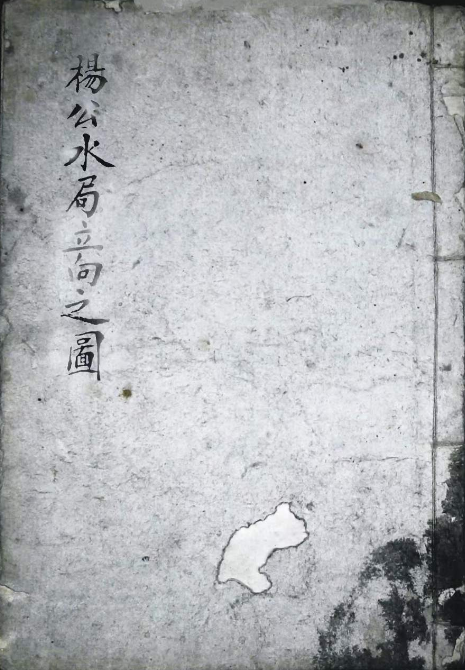 楊公水局立向之圖